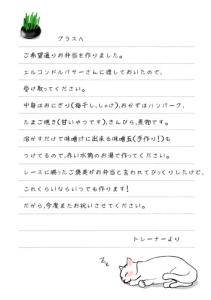 グラスへ
ご希望通りお弁当を作りました。
エルコンドルパサーさんに渡しておいたので、
受け取ってください。
中身はおにぎり(梅干し、しゃけ)、おかずはハンバーグ、
たまご焼き(甘いやつです)、きんぴら、煮物です。
溶かすだけで味噌汁に出来る味噌玉(手作り!)も
つけてるので、赤い水筒のお湯で作ってください。
レースに勝ったご褒美がお弁当と言われてびっくりしたけど、
これくらいならいつでも作ります!
だから、今度またお祝いさせてください。
トレーナーより